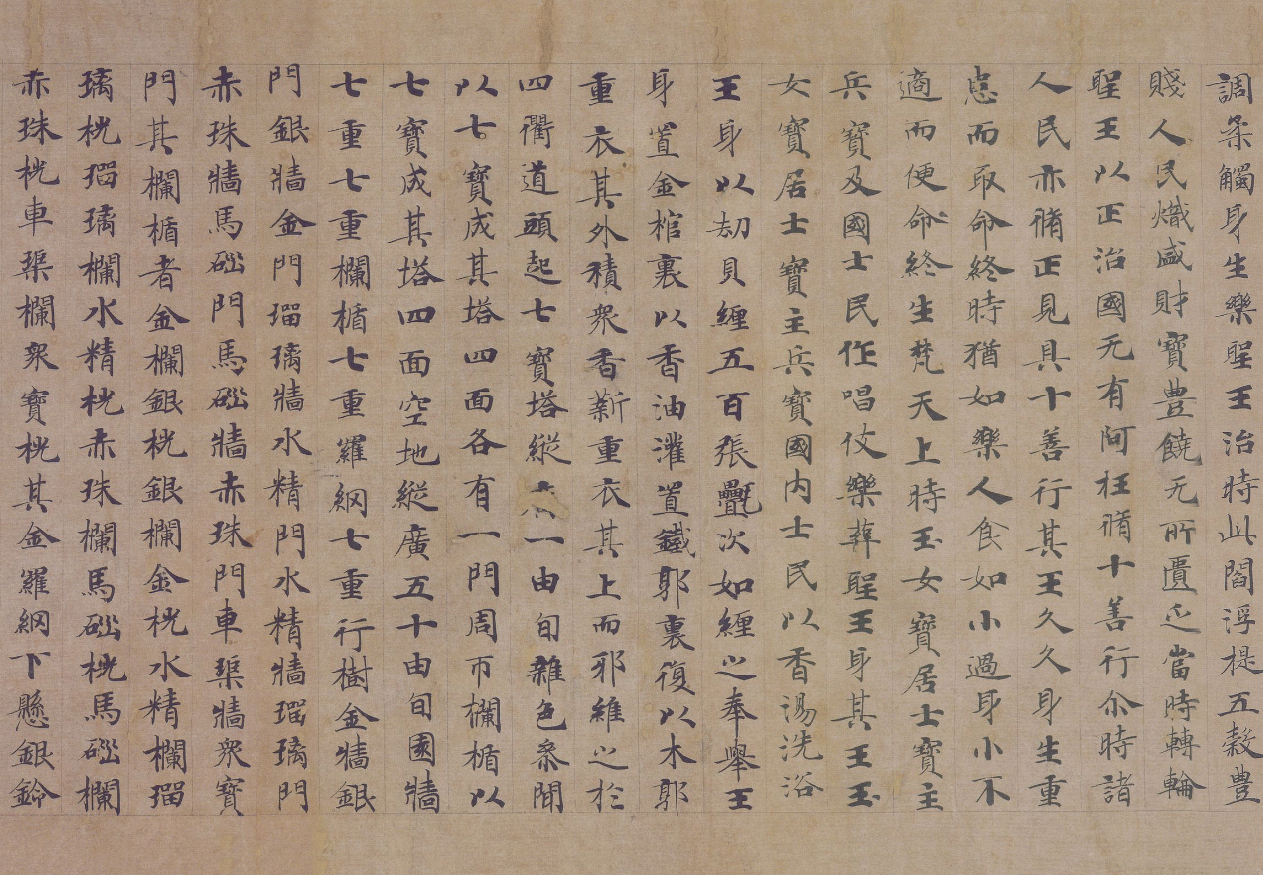 調柔觸身生樂聖王治時此閻浮提五穀豊
賤人民熾盛財寶豊饒无所匱乏當時轉輪
聖王以正治國无有阿枉脩十善行尒時諸
人民亦脩正見具十善行其王久久身生重
患而取命終時猶如樂人食如小過身小不
適而便命終生梵天上時玉女寶居士寶主
兵寶及國士民作唱伎樂葬聖王身其王玉
女寶居士寶主兵寶國內士民以香湯洗浴
王身以劫貝纏五百張疊次如纏之奉舉王
身置金棺裏以香油灌置鐵郭裏復以木郭
重衣其外積衆香薪重衣其上而耶維之於
四衢道頭起七寶塔縱一由旬雜色叅間
以七寶成其塔四面各有一門周帀欄楯以
七寶成其塔四面空地縱廣五十由旬園牆
七重七重欄楯七重羅網七重行樹金牆銀
門銀牆金門瑠璃牆水精門水精牆瑠璃門
赤珠牆馬碯門馬碯牆赤珠門車渠牆衆寶
門其欄楯者金欄銀桄銀欄金桄水精欄瑠
璃桄瑠璃欄水精桄赤珠欄馬碯桄馬碯欄
赤珠桄車渠欄衆寶桄其金羅網下懸銀鈴